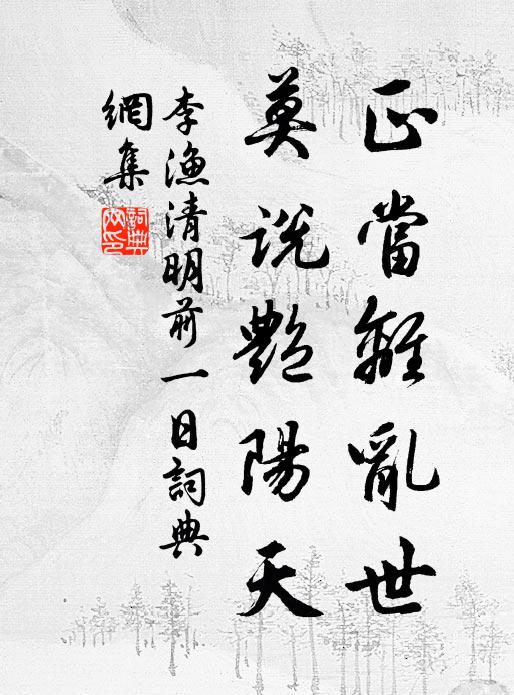 正當離亂世
莫說艷陽天
李漁清明前一日詞典
網集
詞典
网印